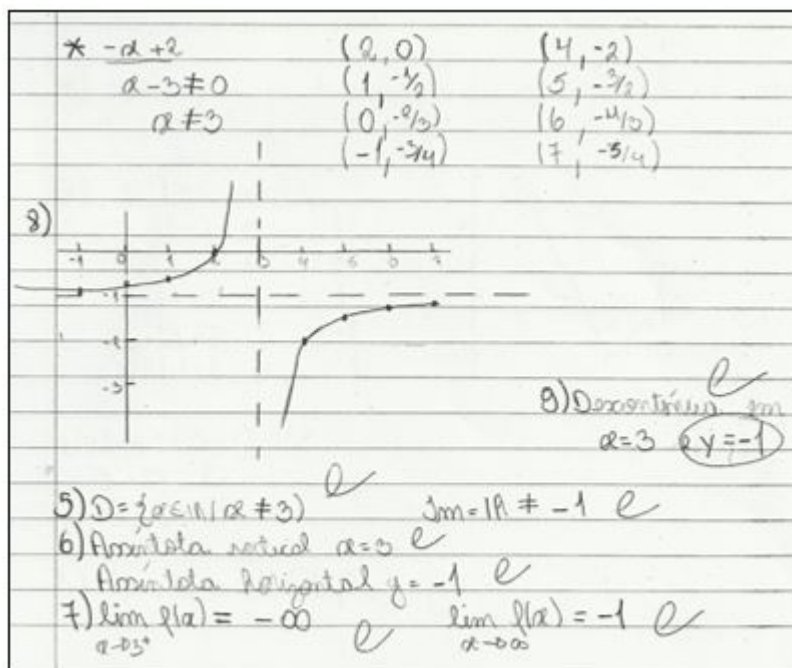 * -x+2 (2, 0) (4, -2)
x-3≠0 (1, -1/2) (5, -3/2)
x≠3 (0, -2/3) (6, -4/3)
(-1, -3/4) (7, -5/4)
8)
-1 0 1 2 3 4 5 6 7
-1
-2
-3
9) Descontínua em
x=3 e y=-1
5) D={x∈IR/x≠3) Im=IR ≠ -1
6) Assíntota vertical x=3
Assíntota horizontal y=-1
7) lim f(x) = -∞ lim f(x) = -1
x→3⁺ x→∞